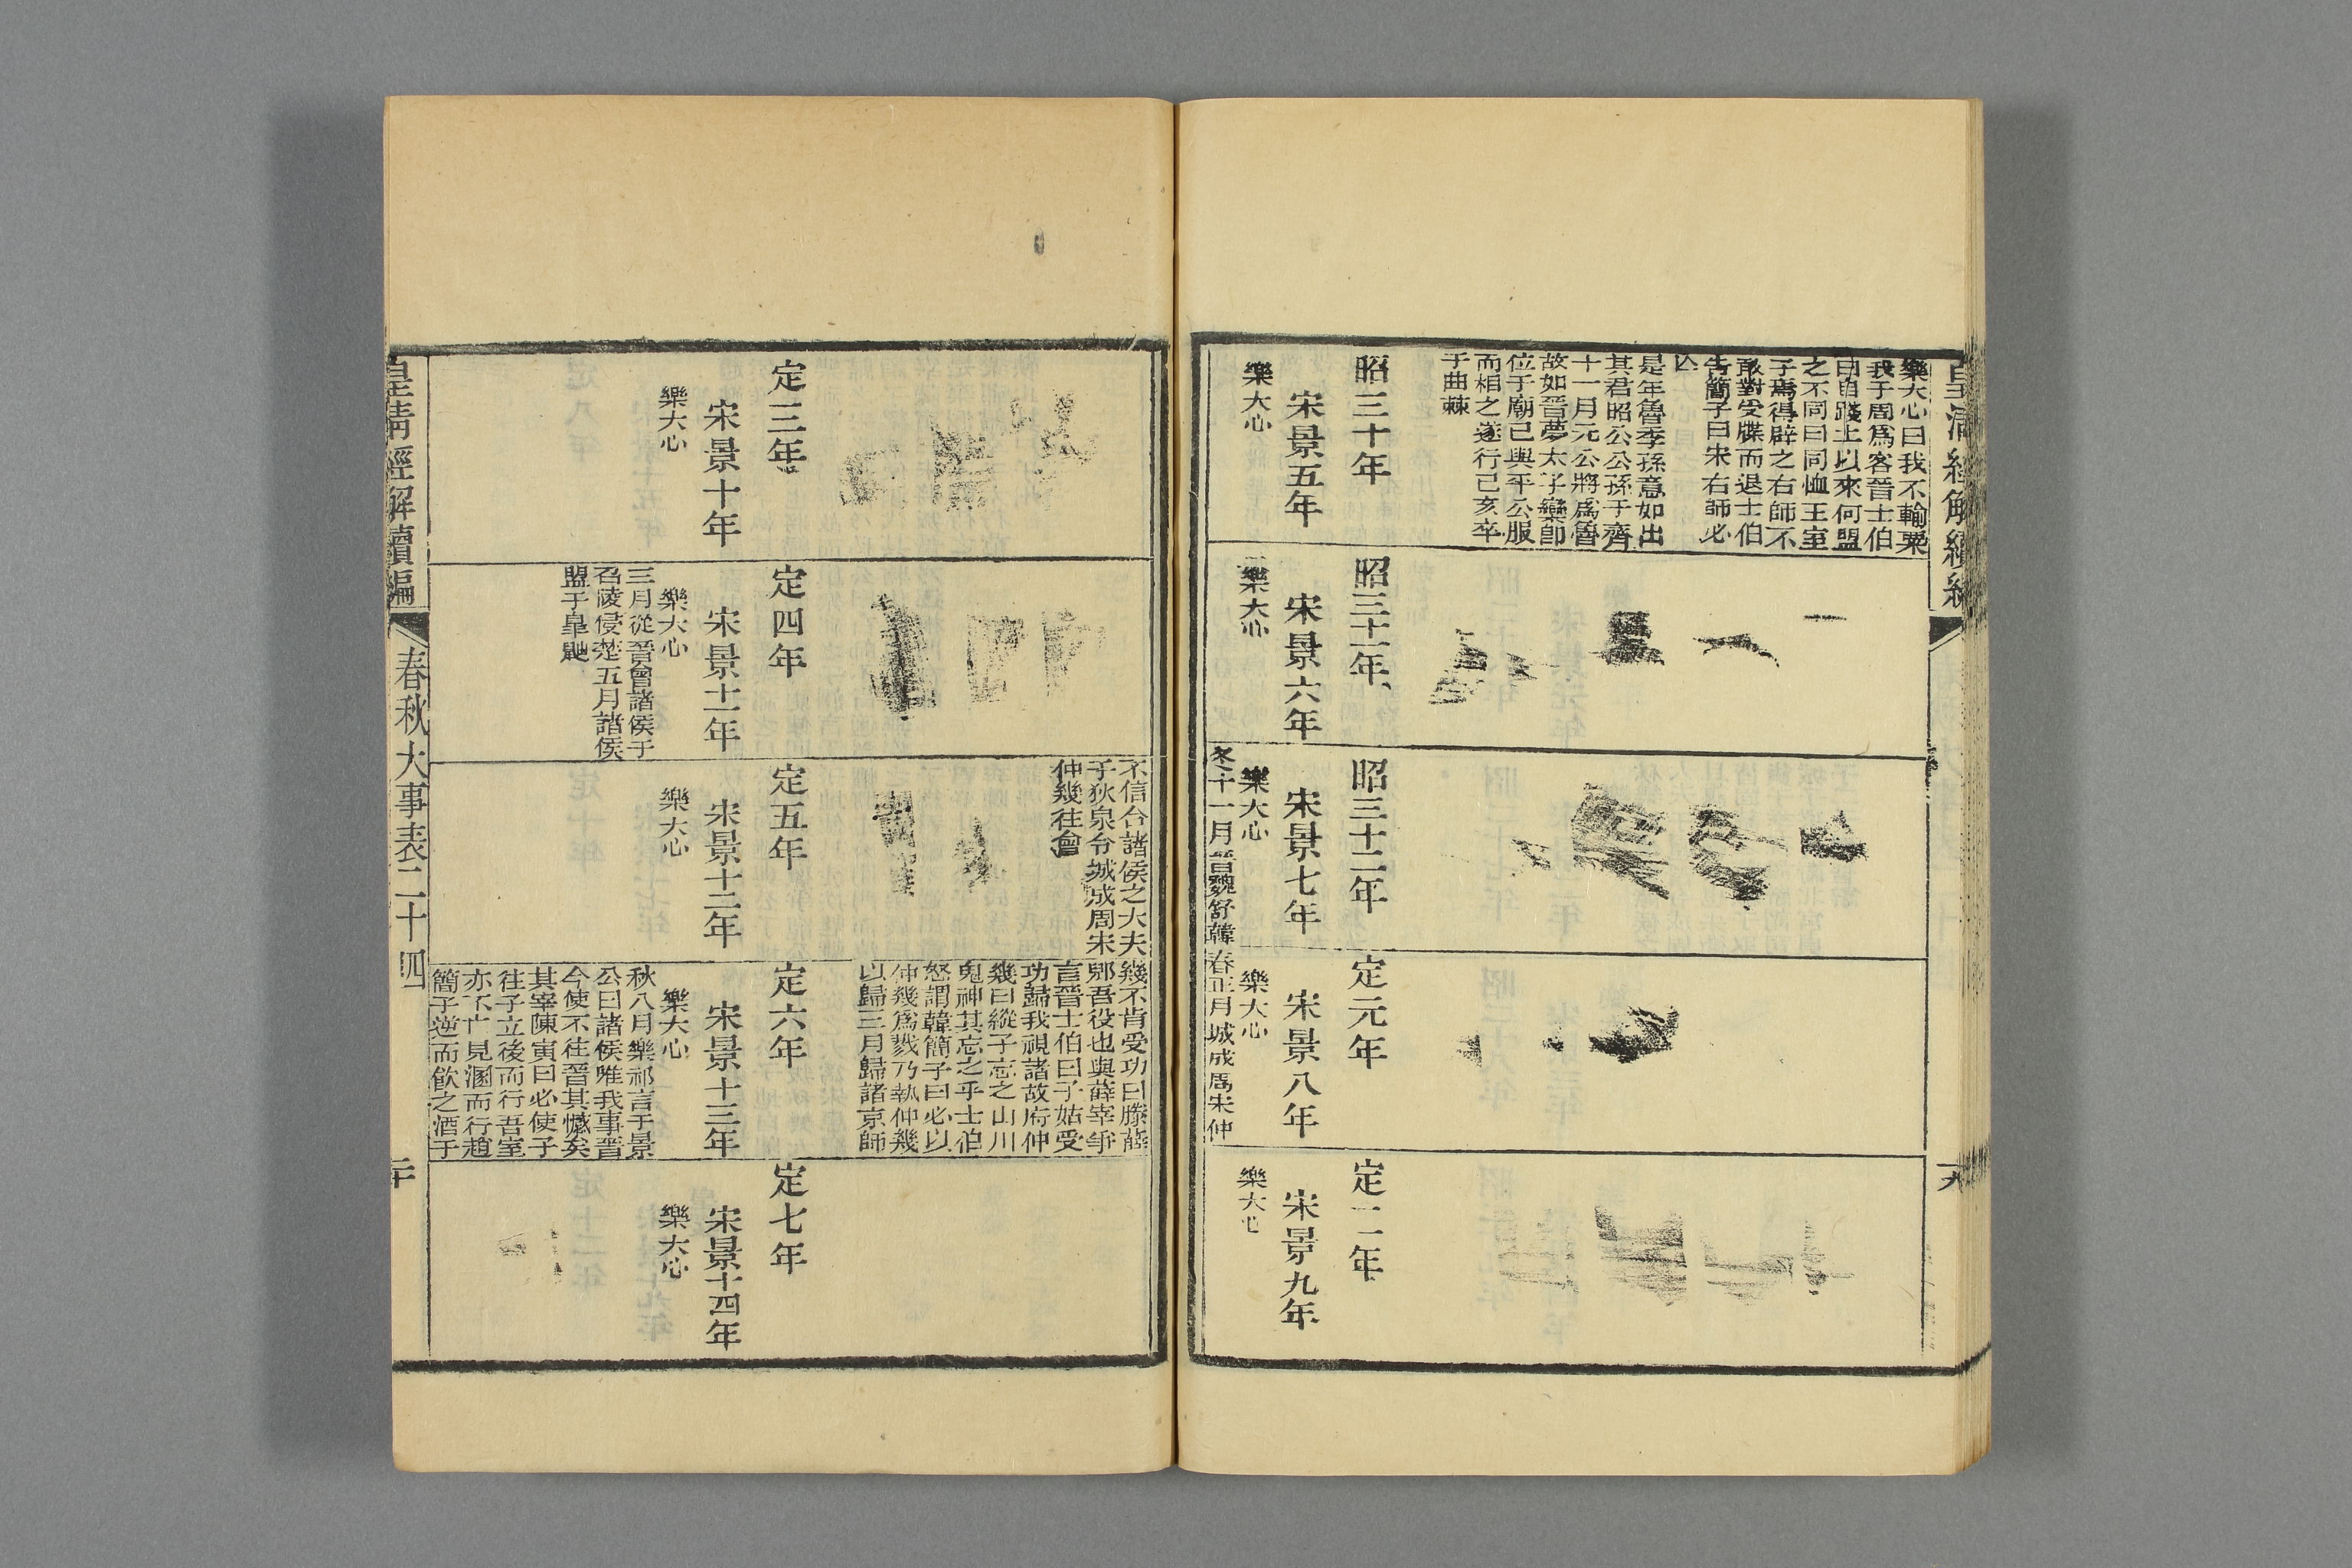 樂大心曰我不輸粟
我于周爲客晉士伯
曰自踐土以來何盟
之不同曰同恤王室
子焉得辟之右師不
敢對受牒而退士伯
告簡子曰宋右師必
亾
是年魯季孫意如出
其君昭公公孫于齊
十一月元公將爲魯
故如晉夢太子欒卽
位于廟己與平公服
而相之遂行己亥卒
于曲棘
昭三十年
宋景五年
樂大心
昭三十一年
宋景六年
樂大心
昭三十二年
宋景七年
樂大心
冬十一月晉魏舒韓
定元年
宋景八年
樂大心
春正月城成周宋仲
定二年
宋景九年
樂大心
十九
定三年
宋景十年
樂大心
定四年
宋景十一年
樂大心
三月從晉會諸侯于
召陵侵楚五月諸侯
盟于皐鼬
不信合諸侯之大夫
于狄泉令城成周宋
仲幾往會
定五年
宋景十二年
樂大心
幾不肯受功曰滕薛
郳吾役也與薛宰爭
言晉士伯曰子姑受
功歸我視諸故府仲
幾曰縱子忘之山川
鬼神其忘之乎士伯
怒謂韓簡子曰必以
仲幾爲戮乃執仲幾
以歸三月歸諸京師
定六年
宋景十三年
樂大心
秋八月樂祁言于景
公曰諸侯唯我事晉
今使不往晉其憾矣
其宰陳寅曰必使子
往子立後而行吾室
亦不亡見溷而行趙
簡子逆而飮之酒于
定七年
宋景十四年
樂大心
皇清經解續編
春秋大事表二十四
二十